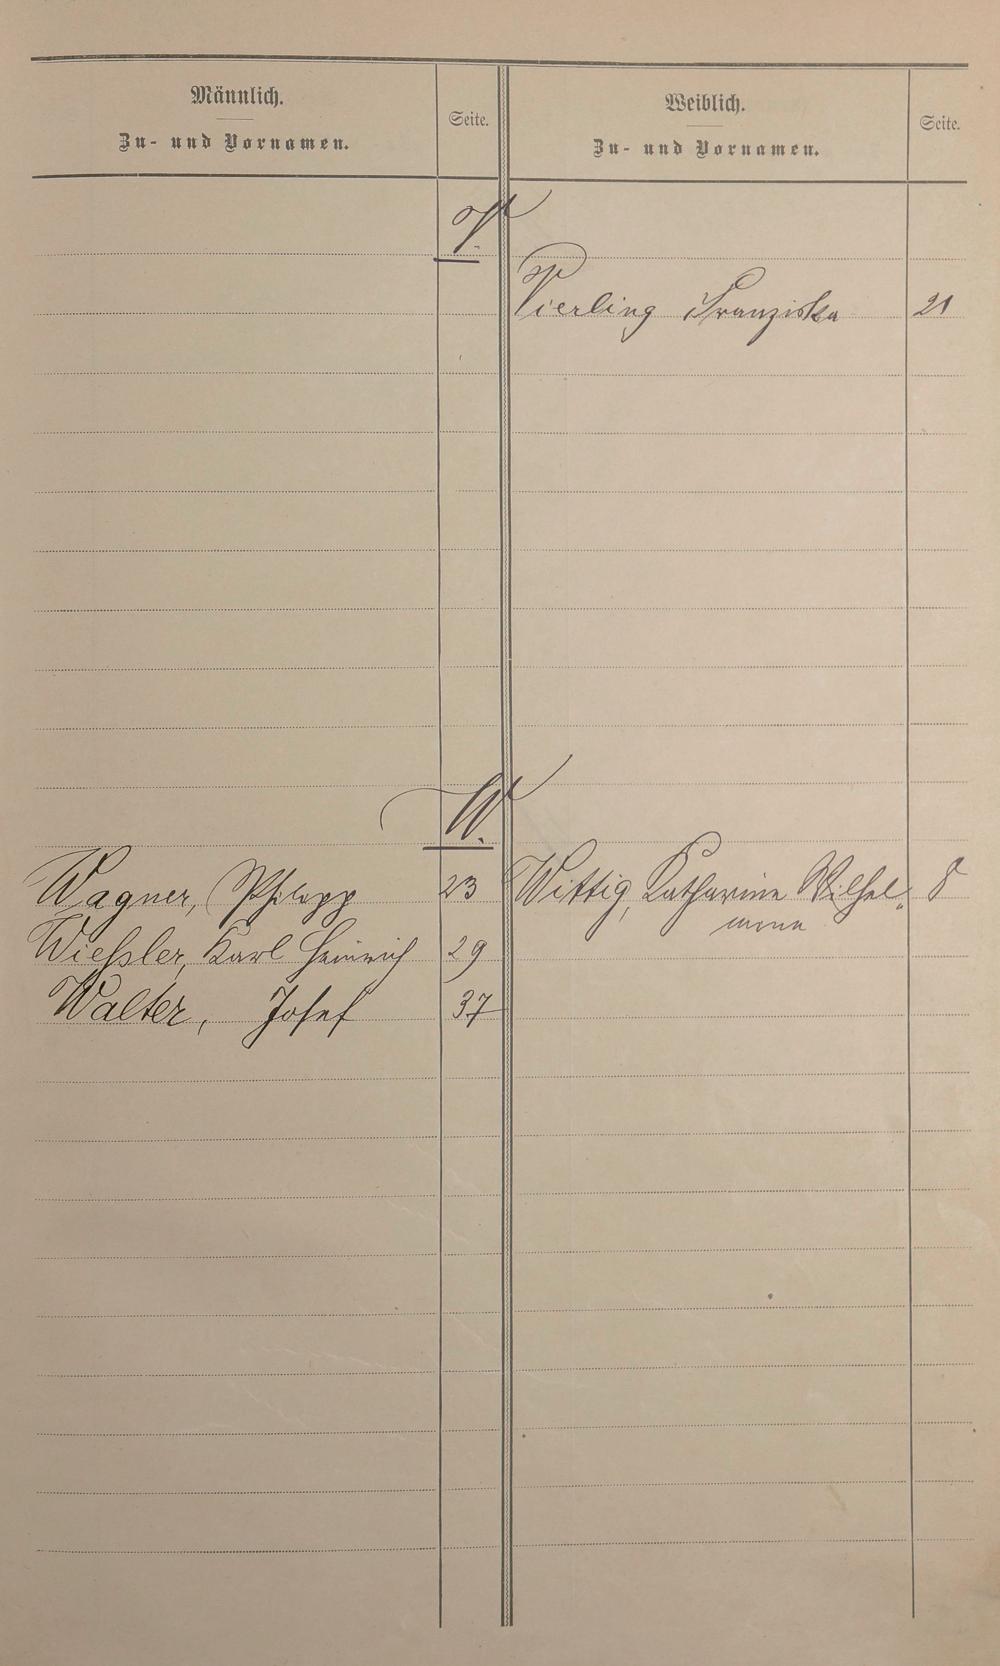 Männlich.
Zu- und Vornamen.
Seite.
Weiblich.
Zu- und Vornamen.
Seite.
V.
Vierling Franziska 21
W.
Wagner, Philipp 23
Wittig, Katharine Wilhel- 8
mina
Wießler, Karl Heinrich 29
Walter, Josef 37